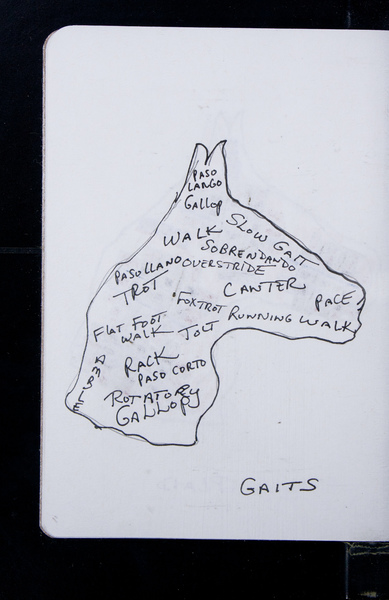 PASO
LARGO
GALLOP
SLOW GAIT
WALK
SOBRENDANDO
PASO LLANO
OVERSTRIDE
TROT
CANTER
PACE
FOXTROT
RUNNING WALK
FLAT FOOT
WALK
TOLT
RACK
PASO CORTO
AMBLE
ROTATORY
GALLOP
GAITS